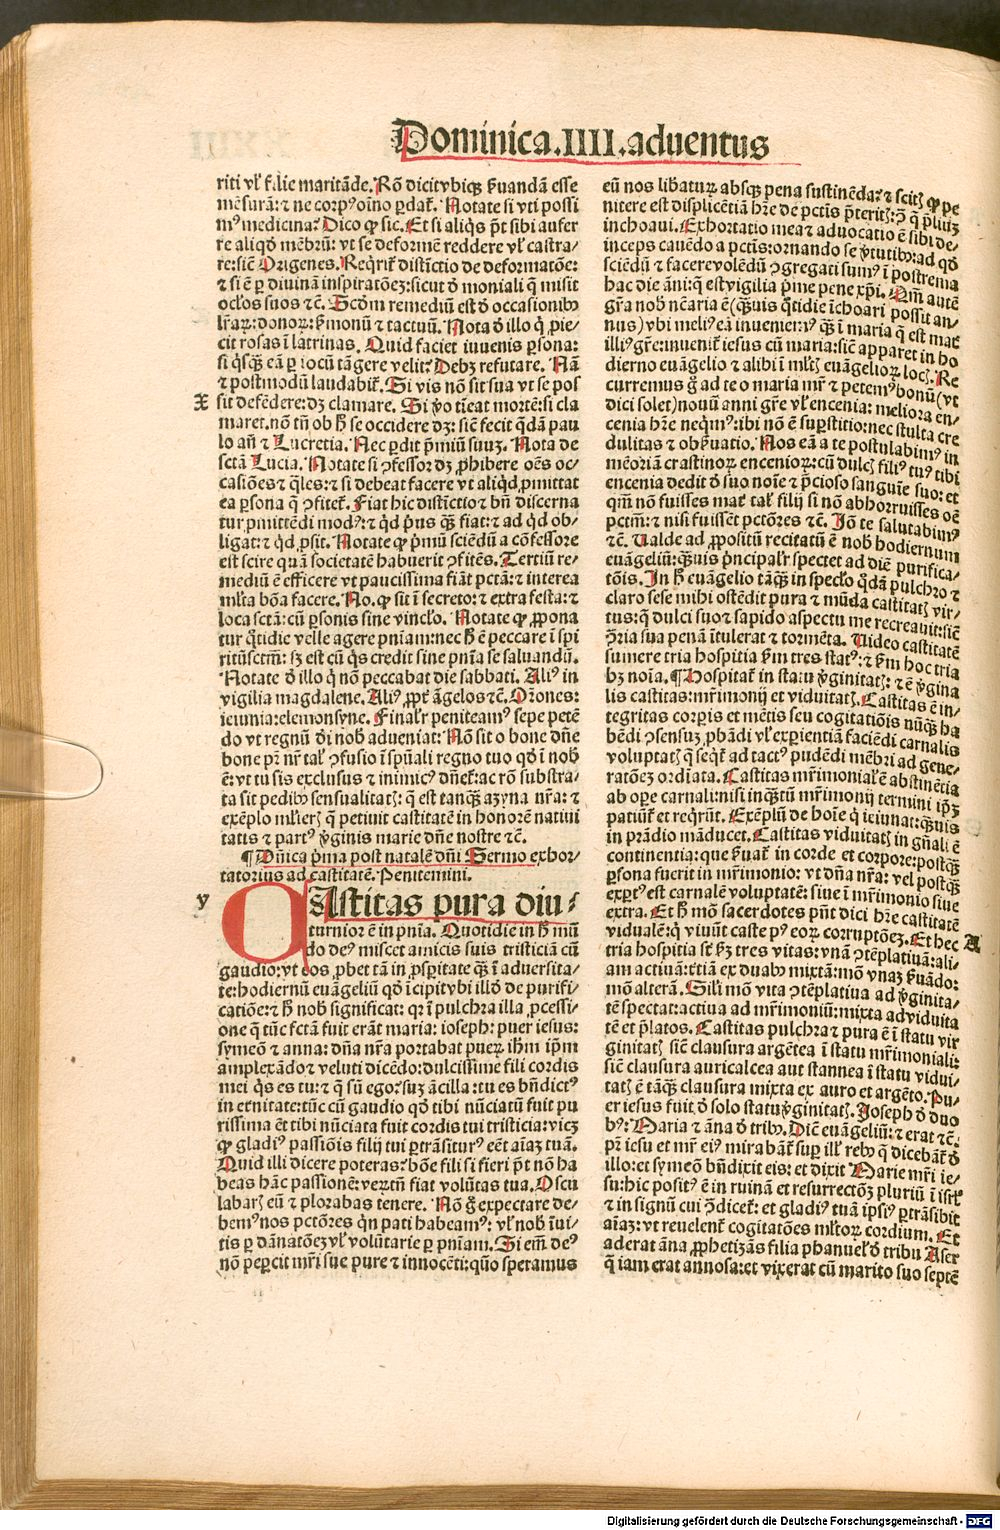 Dominica.IIII.aduentus
riti vl̓ filie maritãde. Rõ dicit vbiqꝫ ẜuandã esse
mẽsurã: ⁊ ne corp⁹ oĩno ꝑdat̃. Notate si vti possi
m⁹ medicina? Dico ꝙ sic. Et si aliq̇s p̃t sibi aufer
re aliqd̓ mẽbrũ: vt se deformẽ reddere vl̓ castra-
re: sic̃ Origenes. Reqrit̃ distĩctio de deformatõe:
⁊ si ẽ ꝑ diuinã inspiratõeꝫ: sicut d̓ moniali q̃ misit
ocl̓os suos ⁊c̃. Scd̓m remediũ est d̓ occasionibꝰ
lr̃aꝝ: donoꝝ: ẜmonũ ⁊ tactuũ. Nota d̓ illo q̇ ꝓie-
cit rosas ĩ latrinas. Quid faciet iuuenis ꝑsona:
si q̇sqʒ̃ eã ꝑ iocũ tãgere velit? Debꝫ refutare. Nã
⁊ postmodũ laudabit̃. Si vis nõ sit sua vt se pos
X sit defẽdere: dꝫ clamare. Si v̓o tĩeat mortẽ: si cla
maret. nõ tñ ob h̓ se occidere dꝫ: sic̃ fecit q̇dã pau
lo añ ⁊ Lucretia. Nec ꝑdit p̃miũ suuꝫ. Nota de
sctã Lucia. Notate si ꝯfessor dꝫ ꝓhibere oẽs oc-
casiões ⁊ q̃les: ⁊ si debeat facere vt aliqd̓ ꝓmittat
ea ꝑsona q̃ ꝯfitet̃. Fiat hic distĩctio ⁊ bñ discerna
tur ꝑmittẽdi mod⁹: ⁊ qd̓ p̃us qʒ̃ fiat: ⁊ ad qd̓ ob-
ligat: ⁊ qd̓ ꝓsit. Notate ꝙ p̃mũ sciẽdũ a cõfessore
est scire quã societatẽ habuerit ꝯfitẽs. Tertiũ re-
mediũ ẽ efficere vt paucissima fiãt pctã: ⁊ interea
ml̓ta bõa facere. No. ꝙ sit ĩ secreto: ⁊ extra festa: ⁊
loca sctã: cũ ꝑsonis sine vincl̓o. Notate ꝙ ꝓpona
tur q̃tidie velle agere pñiam: nec h̓ ẽ peccare ĩ spi
ritũsctm̃: sꝫ est cũ q̇s credit sine pñia se saluandũ.
Notate d̓ illo q̇ nõ peccabat die sabbati. Ali⁹ in
vigilia magdalene. Ali⁹ ꝓpt̃ ãgelos ⁊c̃. Or̃ones:
ieiunia: elemonsyne. Finalr̓ peniteam⁹ sepe petẽ
do vt regnũ d̓i nob̓ adueniat: Nõ sit o bone dñe
bone pr̃ nr̃ tal̓ ꝯfusio ĩ spũali regno tuo qd̓ ĩ nob̓
ẽ: vt tu sis exclusus ⁊ inimic⁹ dñet̃: ac rõ substra-
ta sit pedibꝰ sensualitatꝭ: q̃ est tanqʒ̃ azyna nr̃a: ⁊
exẽplo ml̓ierꝭ q̃ petiuit castitatẽ in honorẽ natiui
tatis ⁊ part⁹ v̓ginis marie dñe nostre ⁊c̃.
¶ Dñica p̃ma post natalẽ dñi Sermo exhor-
tatorius ad castitatẽ. Penitemini.
y CAstitas pura diu-
turnior ẽ in pñia. Quotidie in h̓ mũ
do de⁹ miscet amicis suis tristiciã cũ
gaudio: vt eos ꝓbet tã in ꝓsꝑitate qʒ̃ ĩ aduersita-
te: hodiernũ euãgeliũ qd̓ ĩcipit vbi illd̓ de purifi-
catiõe: ⁊ h̓ nob̓ significat: qr ĩ pulchra illa ꝓcessi-
one q̃ tũc fctã fuit erãt maria: ioseph: puer iesus:
symeõ ⁊ anna: dña nr̃a portabat pueꝝ ihm̃ ip̃m
amplexãdo ⁊ veluti dicẽdo: dulcissime fili cordis
mei q̇s es tu: ⁊ q̃ sũ ego? suꝫ ãcilla: tu es bñdict⁹
in etnitate: tũc cũ gaudio qd̓ tibi nũciatũ fuit pu
rissima ẽt tibi nũciata fuit cordis tui tristicia: vicꝫ
ꝙ gladi⁹ passiõis filij tui ꝑtrãsitur⁹ eẽt aĩaꝫ tuã.
Quid illi dicere poteras? bõe fili si fieri p̃t nõ ha
beas hãc passionẽ: veꝝtñ fiat volũtas tua. Oscu
labarꝭ eũ ⁊ plorabas tenere. Nõ g̊ expectare de-
bem⁹ nos pctõres q̇n pati habeam⁹: vl̓ nob̓ ĩui-
tis ꝑ dãnatõeꝫ vl̓ volũtarie ꝑ pñiam. Si em̃ de⁹
nõ peꝑcit mr̃i sue pure ⁊ innocẽti: quõ speramus
eũ nos lib̓aturꝝ absqꝫ pena sustinẽda? ⁊ scitꝭ ꝙ pe
nitere est displicẽtiã hr̃e de pctĩs p̃teritꝭ: ꝯ q̃ pluiꝫ
inchoaui. Exhortatio mea ⁊ aduocatio ẽ sibi de-
inceps cauẽdo a pctĩs: ornando se v̓tutibꝰ: ad qd̓
sciẽdũ ⁊ facere volẽdũ ꝯgregati sum⁹ ĩ postrema
hac die ãni: q̃ est vigilia p̃me pene xp̃i. Qm̃ autẽ
gr̃a nob̓ nc̃aria ẽ (qʒ̃uis q̃tidie ĩchoari possit an-
nus) vbi meli⁹ eã inueniem⁹ qʒ̃ ĩ maria q̃ est mat̃
illi⁹ gr̃e: inuenit̃ iesus cũ maria: sic̃ apparet in ho
dierno euãgelio ⁊ alibi ĩ ml̓tꝭ euãgelioꝝ locꝭ. Re
curremus g̊ ad te o maria mr̃ ⁊ petem⁹ bonũ (vt
dici solet) nouũ anni gr̃e vl̓ encenia: meliora en-
cenia hr̃e neqm⁹: ibi nõ ẽ suꝑstitio: nec stulta cre
dulitas ⁊ obẜuatio. Nos eã a te postulabim⁹ in
mẽoriã crastinoꝝ encenioꝝ: cũ dulcꝭ fili⁹ tu⁹ tibi
encenia dedit d̓ suo noĩe ⁊ p̃cioso sanguĩe suo: et
qm̃ nõ fuisses mat̃ tal̓ filij si nõ abhorruisses oẽ
pctm̃: ⁊ nisi fuissẽt pctõres ⁊c̃. Jõ te salutabim⁹
⁊c̃. Ualde ad ꝓpositũ recitatũ ẽ nob̓ hodiernum
euãgeliũ: qʒ̃uis p̃ncipalr̓ spectet ad diẽ purifica-
tõis. Jn h̓ euãgelio tãqʒ̃ in specl̓o q̇dã pulchro ⁊
claro sese mihi ostẽdit pura ⁊ mũda castitatꝭ vir-
tus: q̃ dulci suo ⁊ sapido aspectu me recreauit: sic̃
ꝯr̃ia sua penã ĩtulerat ⁊ tormẽta. Uideo castitatẽ
sumere tria hospitia ẜm tres stat⁹: ⁊ ẜm hoc tria
hꝫ noĩa. ¶ Hospitat̃ in statu v̓ginitatꝭ: ⁊ ẽ v̓gina
lis castitas: mr̃imonij et viduitatꝭ. Castitas ẽ in-
tegritas corpĩs et mẽtis seu cogitatiõis nũqʒ̃ ha
bẽdi ꝯsensuꝫ ꝓbãdi vl̓ exꝑientiã faciẽdi carnalis
voluptatꝭ q̃ seqt̃ ad tact⁹ pudẽdi mẽbri ad gene-
ratõeꝫ ordĩata. Castitas mr̃imonial̓ ẽ abstinẽtia
ab oꝑe carnali: nisi inqʒ̃tũ mr̃imonij termini ip̃ꝫ
patiũt̃ et reqrũt. Exẽplũ de boĩe q̇ ieiunat: qʒ̃uis
in prãdio mãducet. Castitas viduitatꝭ in gñali ẽ
continentia: que ẜuat̃ in corde et corpore: postqʒ̃
ꝑsona fuerit in mr̃imonio: vt dña nr̃a: vel postqʒ̃
exꝑt⁹ est carnalẽ voluptatẽ: siue ĩ mr̃imonio siue
extra. Et h̓ mõ sacerdotes pñt dici hr̃e castitatẽ
vidualẽ: q̇ viuũt caste p⁹ eoꝝ corruptõeꝫ. Et hec A
tria hospitia st̃ ẜꝫ tres vitas: vnã ꝯtẽplatiuã: ali-
am actiuã: tertiã ex duabꝰ mixtã: mõ vnaꝫ ẜuãdo:
mõ alterã. Sil̓i mõ vita ꝯtẽplatiua ad v̓ginita-
tẽ spectat: actiua ad mr̃imoniũ: mixta ad viduita
tẽ et p̃latos. Castitas pulchra ⁊ pura ẽ ĩ statu vir
ginitatꝭ sic̃ clausura argẽtea ĩ statu mr̃imoniali:
sic̃ clausura auricalcea aut stannea ĩ statu vidui-
tatꝭ ẽ tãqʒ̃ clausura mixta ex auro et argẽto. Pu-
er iesus fuit d̓ solo statu v̓ginitatꝭ. Joseph d̓ duo
b⁹: Maria ⁊ ãna d̓ tribꝰ. Dic̃ euãgeliũ: ⁊ erat ⁊c̃.
pr̃ iesu et mr̃ ei⁹ mirabãt̃ suꝑ ill̓ rebꝰ q̃ dicebãt̃ d̓
illo: et symeõ bñdixit eis: et dixit Marie mr̃i ie-
su: hic posit⁹ ẽ in ruinã et resurrectõeꝫ pluriũ ĩ isrl̓
⁊ in signũ cui ꝯdicet̃: et gladi⁹ tuã ipsi⁹ ꝑtrãsibit
aĩaꝫ: vt reuelent̃ cogitatões ml̓toꝝ cordium. Et
aderat ãna ꝓphetiʒãs filia phanuel̓ d̓ tribu Aser
q̃ iam erat annosa: et vixerat cũ marito suo septẽ
Digitalisierung gefördert durch die Deutsche Forschungsgemeinschaft - DFG